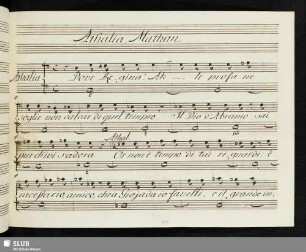 Athalia Mathan
Athalia Dove Regina? Ah le profane
soglie non calcar di quel tempio Il Dio d'Abramo sai
pur chi vi s'adora Athal. Or non è tempo di tai riguardi è
necessario amico, ch'a Gojada io favelli, e il grande in,
SLUB